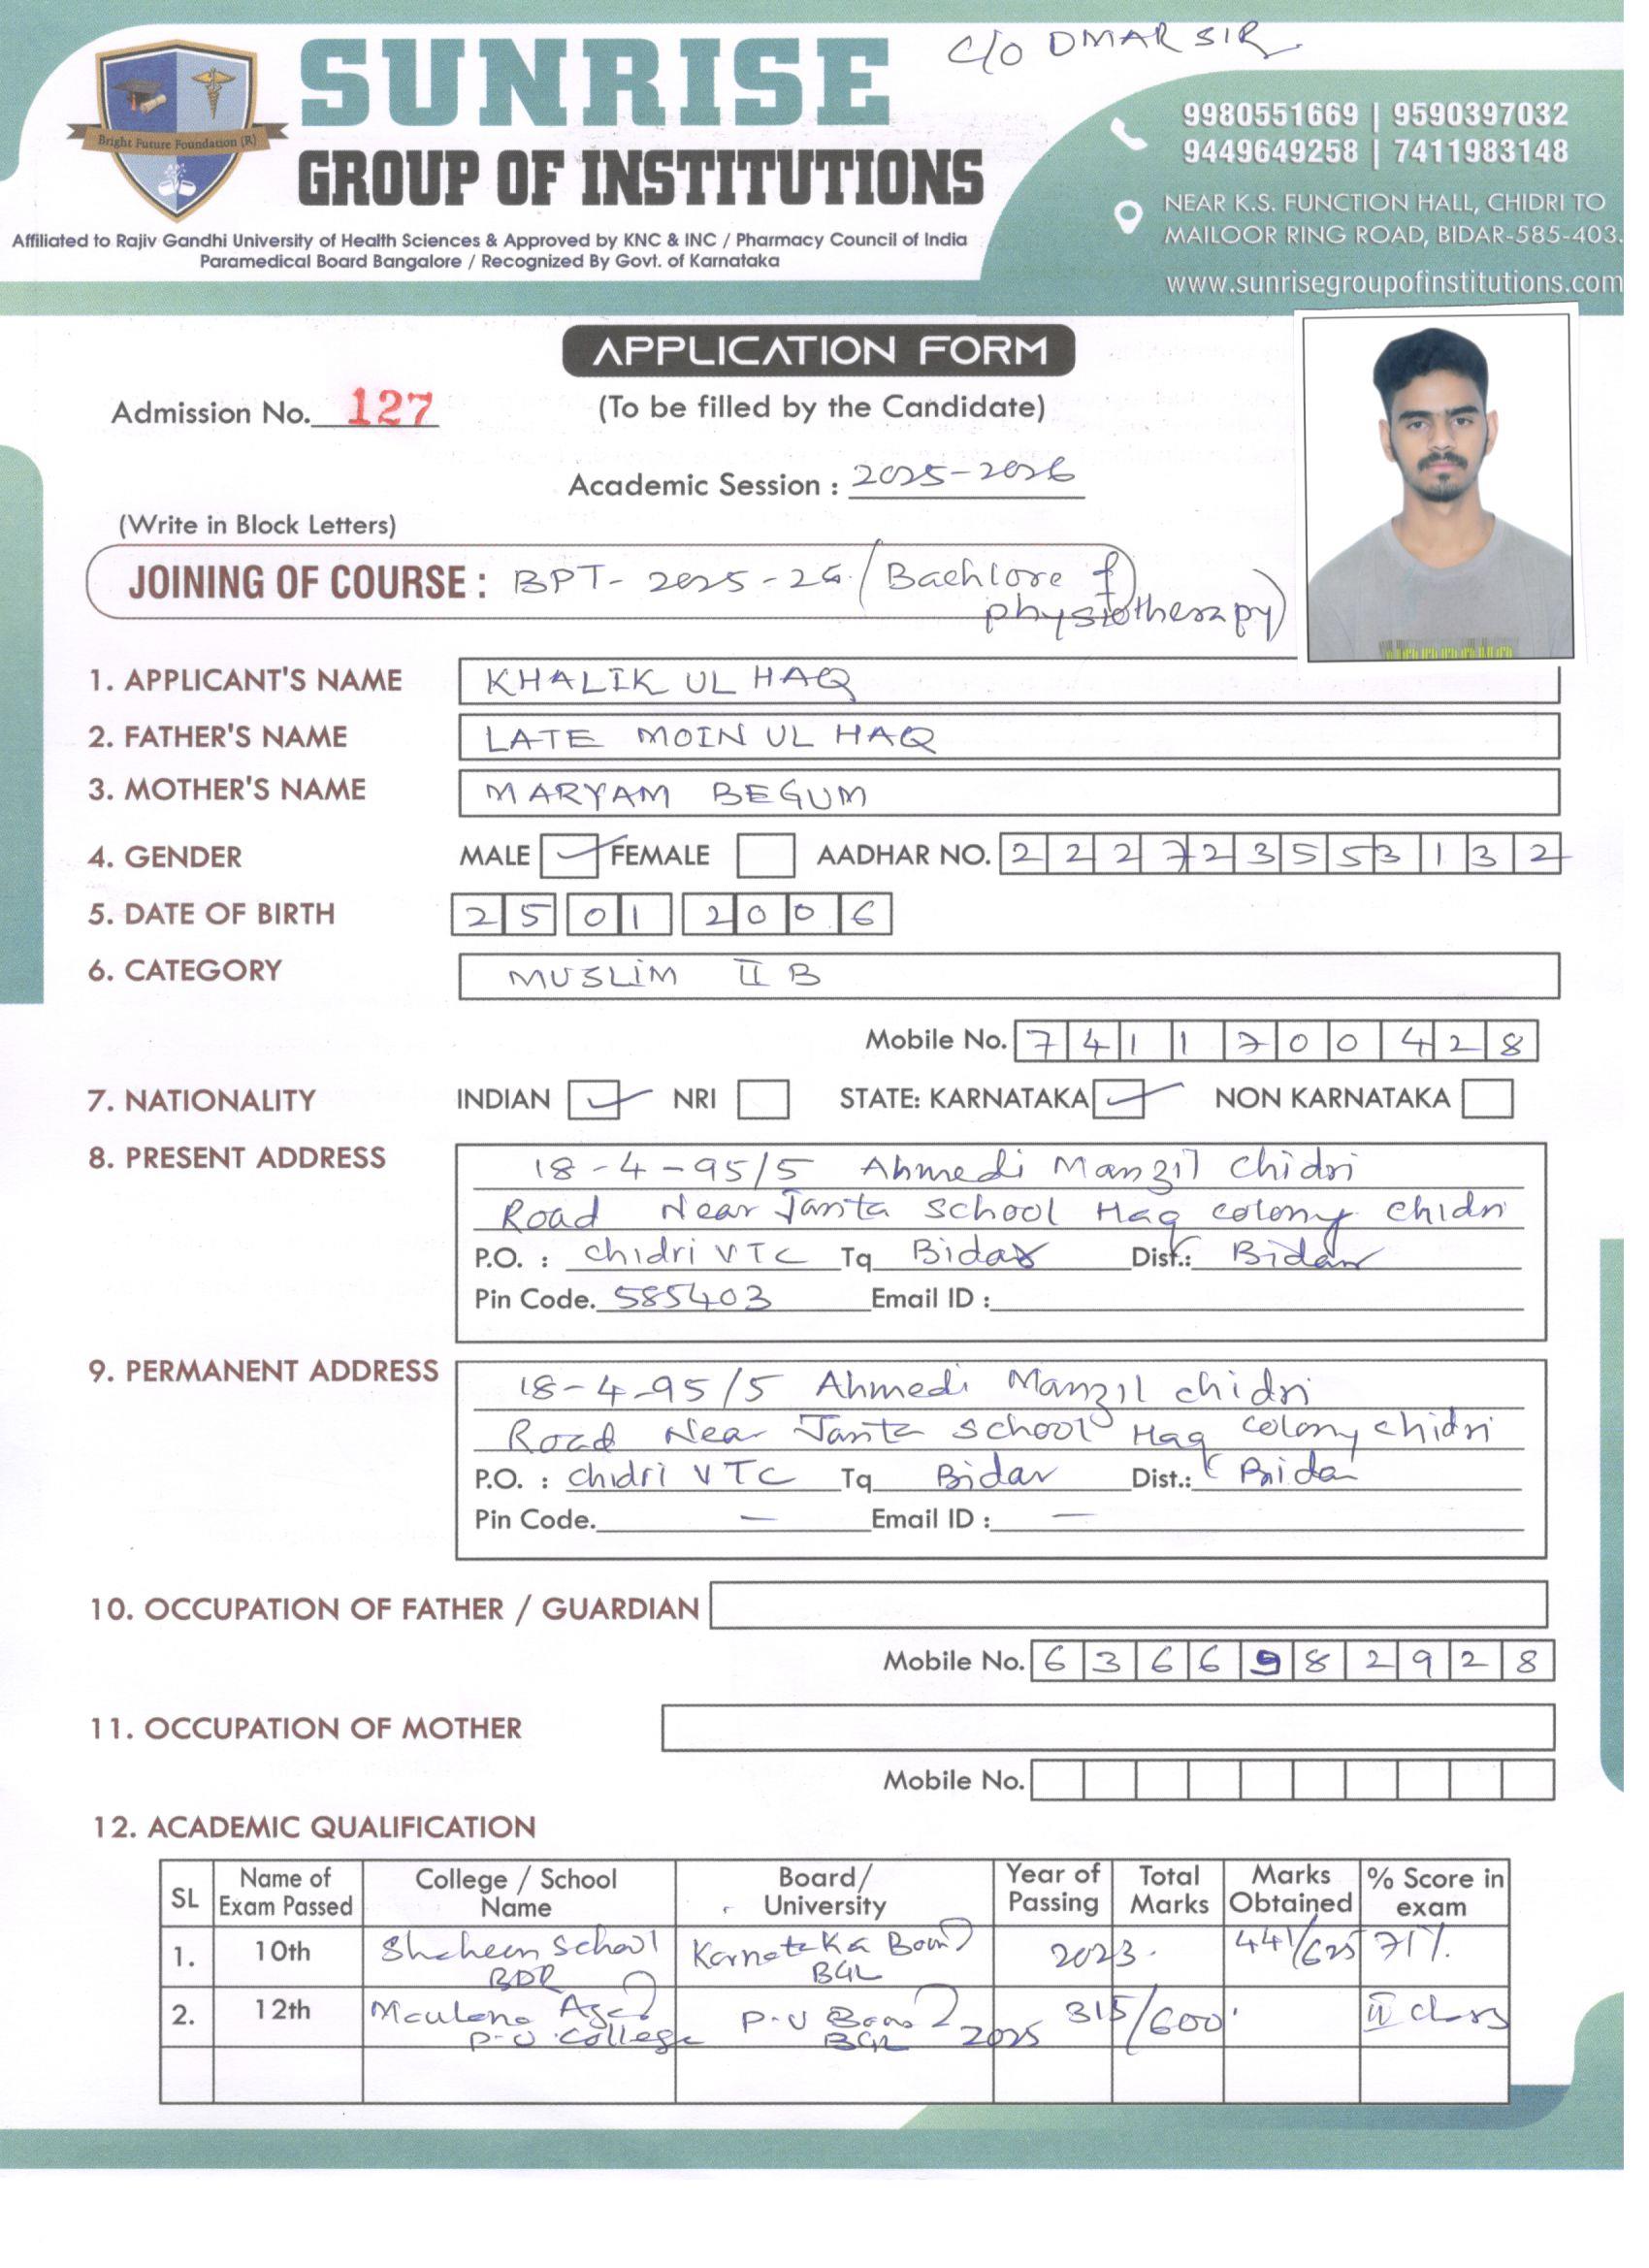 C/O OMAR SIR
SUNRISE
GROUP OF INSTITUTIONS
Bright Future Foundation (R)
Affiliated to Rajiv Gandhi University of Health Sciences & Approved by KNC & INC / Pharmacy Council of India
Paramedical Board Bangalore / Recognized By Govt. of Karnataka
9980551669 | 9590397032
9449649258 | 7411983148
NEAR K.S. FUNCTION HALL, CHIDRI TO
MAILOOR RING ROAD, BIDAR-585-403.
www.sunrisegroupofinstitutions.com
APPLICATION FORM
Admission No. 127 (To be filled by the Candidate)
Academic Session : 2025-2026
(Write in Block Letters)
JOINING OF COURSE : BPT- 2025-26 / (Bachlore of
physiotherapy)
1. APPLICANT'S NAME KHALIK UL HAQ
2. FATHER'S NAME LATE MOIN UL HAQ
3. MOTHER'S NAME MARYAM BEGUM
4. GENDER MALE ✓ FEMALE AADHAR NO. 2 2 2 7 2 3 5 5 3 1 3 2
5. DATE OF BIRTH 2 5 0 1 2 0 0 6
6. CATEGORY MUSLIM II B
Mobile No. 7 4 1 1 7 0 0 4 2 8
7. NATIONALITY INDIAN ✓ NRI STATE: KARNATAKA ✓ NON KARNATAKA
8. PRESENT ADDRESS 18-4-95/5 Ahmedi Manzil Chidri
Road Near Janta School Haq colony chidri
P.O. : chidri VTC Tq Bidar Dist.: Bidar
Pin Code. 585403 Email ID :
9. PERMANENT ADDRESS 18-4-95/5 Ahmedi Manzil chidri
Road Near Janta School Haq colony chidri
P.O. : chidri VTC Tq Bidar Dist.: Bidar
Pin Code. — Email ID : —
10. OCCUPATION OF FATHER / GUARDIAN
Mobile No. 6 3 6 6 9 8 2 9 2 8
11. OCCUPATION OF MOTHER
Mobile No.
12. ACADEMIC QUALIFICATION
SL Name of Exam Passed College / School Name Board/ University Year of Passing Total Marks Marks Obtained % Score in exam
1. 10th Shaheen School BDR Karnataka Board BGL 2023. 441/625 71%.
2. 12th Maulana Azad P-U College P-U Board BGL 2025 315/600 II class